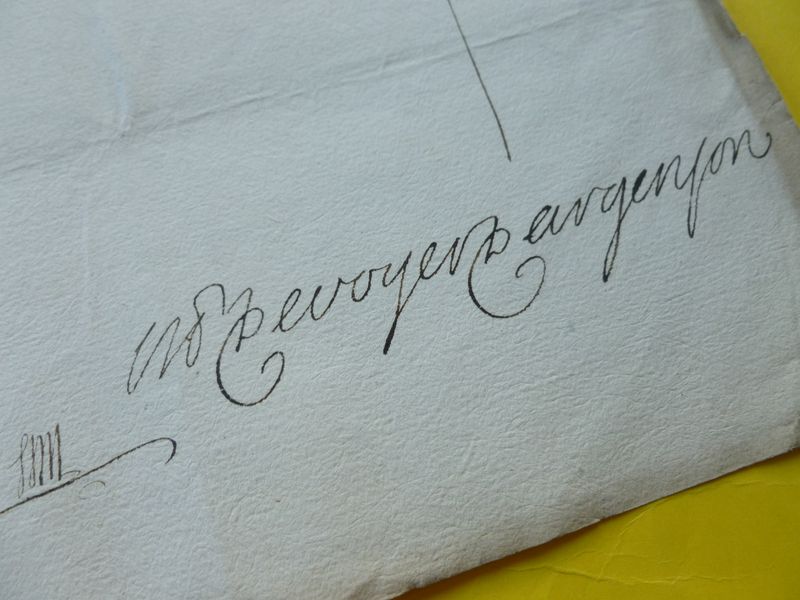 M R Devoyer Dargenson